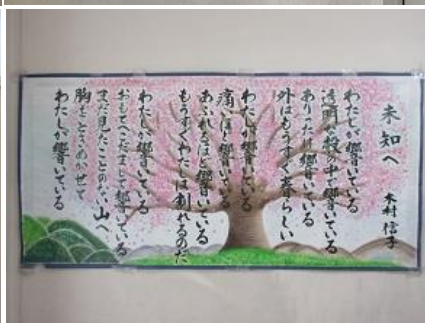 未知へ
木村信子
わたしが響いている
透明な殻の中で響いている
ありったけ響いている
外はもうすぐ春らしい
わたしが響いている
痛いほど響いている
あふれるほど響いている
もうすぐわたしは割れるのだ
わたしが響いている
おもてへこだまして響いている
まだ見たこともない山へ
胸をときめかせて
わたしが響いている